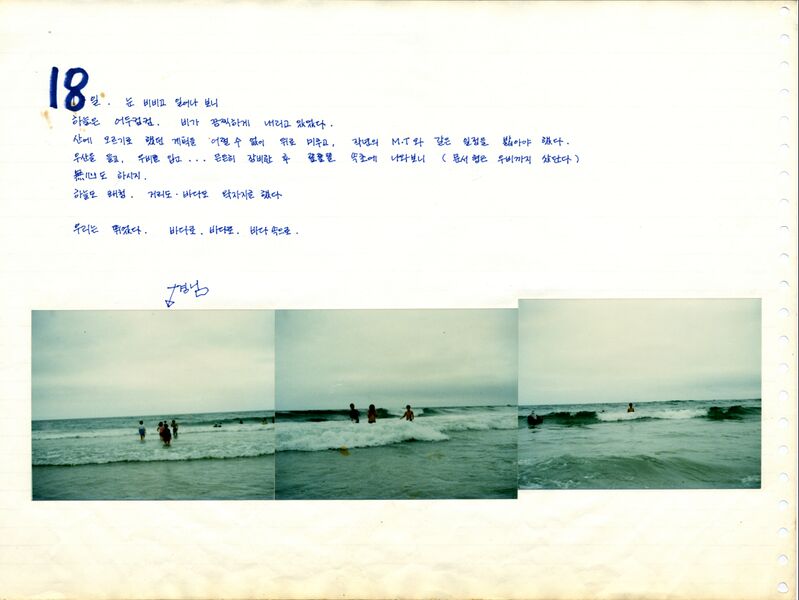 18일. 눈 비비고 일어나 보니
하늘은 어두컴컴. 비가 끔찍하게 내리고 있었다.
산에 오르기로 했던 계획을 어쩔 수 없이 뒤로 미루고, 작년의 M.T와 같은 일정을 밟아야 했다.
우산을 들고, 우비를 입고... 든든히 장비한 후 속초에 나와보니 (문서형은 우비까지 샀단다)
하늘도 거리도·바다도 했다
우리는 뛰었다. 바다로, 바다로, 바다 속으로.
경남